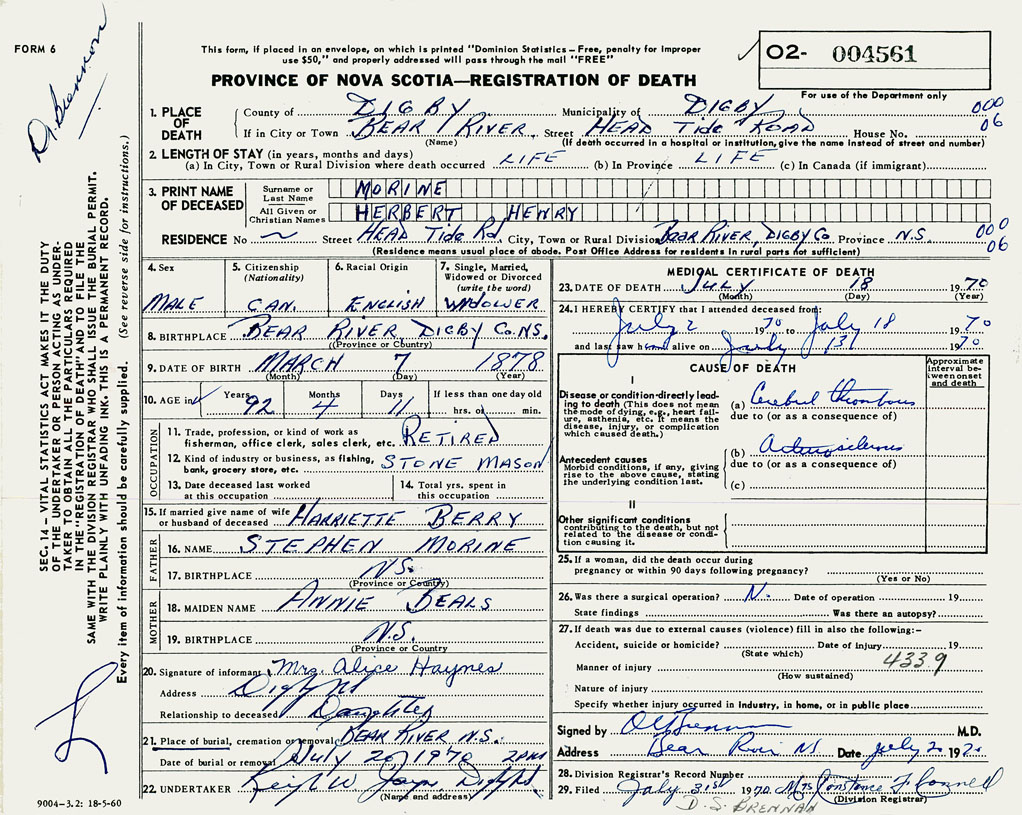 FORM 6
D. Brennan
This form, if placed in an envelope, on which is printed "Dominion Statistics – Free, penalty for improper
use $50," and properly addressed will pass through the mail "FREE"
PROVINCE OF NOVA SCOTIA—REGISTRATION OF DEATH
O2- 004561
For use of the Department only
1. PLACE OF DEATH
County of DIGBY Municipality of DIGBY 000
If in City or Town BEAR RIVER Street HEAD Tide ROAD House No. 06
(Name) (If death occurred in a hospital or institution, give the name instead of street and number)
2. LENGTH OF STAY (in years, months and days)
(a) In City, Town or Rural Division where death occurred LIFE (b) In Province LIFE (c) In Canada (if immigrant)
3. PRINT NAME OF DECEASED
Surname or Last Name MORINE
All Given or Christian Names HERBERT HENRY
RESIDENCE No ~ Street HEAD Tide Rd, City, Town or Rural Division BEAR RIVER, DIGBY Co. Province N.S. 000
06
(Residence means usual place of abode. Post Office Address for residents in rural parts not sufficient)
4. Sex
MALE
5. Citizenship
(Nationality)
CAN.
6. Racial Origin
ENGLISH
7. Single, Married,
Widowed or Divorced
(write the word)
WIDOWER
8. BIRTHPLACE BEAR RIVER, DIGBY Co. N.S.
(Province or Country)
9. DATE OF BIRTH MARCH 7 1878
(Month) (Day) (Year)
10. AGE in Years 92 Months 4 Days 11 If less than one day old
hrs. or min.
OCCUPATION
11. Trade, profession, or kind of work as
fisherman, office clerk, sales clerk, etc. RETIRED
12. Kind of industry or business, as fishing,
bank, grocery store, etc. STONE MASON
13. Date deceased last worked
at this occupation
14. Total yrs. spent in
this occupation
15. If married give name of wife
or husband of deceased HARRIETTE BERRY
FATHER
16. NAME STEPHEN MORINE
17. BIRTHPLACE N.S.
(Province or Country)
MOTHER
18. MAIDEN NAME ANNIE BEALS
19. BIRTHPLACE N.S.
(Province or Country
20. Signature of informant Mrs. Alice Haynes
Address Digby NS
Relationship to deceased Daughter
21. Place of burial, cremation or removal BEAR RIVER N.S.
Date of burial or removal July 20, 1970 2 PM
22. UNDERTAKER W. Digby NS
(Name and address)
MEDICAL CERTIFICATE OF DEATH
23. DATE OF DEATH JULY 18 1970
(Month) (Day) (Year)
24. I HEREBY CERTIFY that I attended deceased from:
July 2 1970 to July 18 1970
and last saw him alive on July 1970
CAUSE OF DEATH
Approximate
interval be-
tween onset
and death
I
Disease or condition directly lead-
ing to death (This does not mean
the mode of dying, e.g., heart fail-
ure, asthenia, etc. It means the
disease, injury, or complication
which caused death.)
(a) Cerebral thrombosis
due to (or as a consequence of)
Antecedent causes
Morbid conditions, if any, giving
rise to the above cause, stating
the underlying condition last.
(b) Arteriosclerosis
due to (or as a consequence of)
(c)
II
Other significant conditions
contributing to the death, but not
related to the disease or condi-
tion causing it.
25. If a woman, did the death occur during
pregnancy or within 90 days following pregnancy?
(Yes or No)
26. Was there a surgical operation? N. Date of operation 19
State findings Was there an autopsy?
27. If death was due to external causes (violence) fill in also the following:-
Accident, suicide or homicide? Date of injury 19
(State which) 433.9
Manner of injury
(How sustained)
Nature of injury
Specify whether injury occurred in industry, in home, or in public place
Signed by Brennan M.D.
Address Bear River NS Date July 20 1970
28. Division Registrar's Record Number
29. Filed July 31st 1970 Mrs Constance F Connell
(Division Registrar)
D. S. BRENNAN
SEC. 14 – VITAL STATISTICS ACT MAKES IT THE DUTY
OF THE UNDERTAKER OR PERSON ACTING AS UNDER-
TAKER TO OBTAIN ALL THE PARTICULARS REQUIRED
IN THE "REGISTRATION OF DEATH" AND TO FILE THE
SAME WITH THE DIVISION REGISTRAR WHO SHALL ISSUE THE BURIAL PERMIT.
WRITE PLAINLY WITH UNFADING INK. THIS IS A PERMANENT RECORD.
Every item of information should be carefully supplied. (See reverse side for instructions.)
9004-3.2: 18-5-60